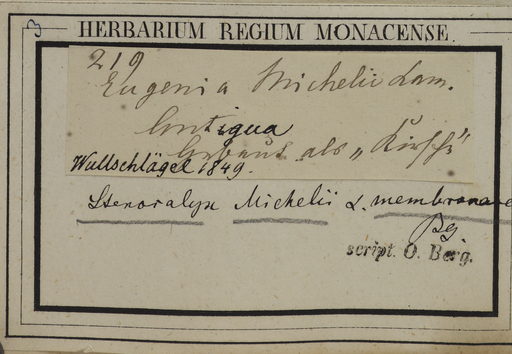 HERBARIUM REGIUM MONACENSE.
219
Eugenia Michelii Lam.
Antigua
Gebaut als „Kirsche"
Wullschlägel 1849.
Stenocalyx Michelii α. membranace
Bg
script. O. Berg.